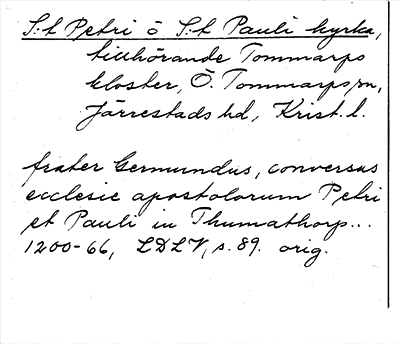 S:t Petri o S:t Pauli kyrka,
tillhörande Tommarps
kloster, Ö. Tommarps sn,
Järrestads hd, Krist. l.
frater Germundus, conversus
ecclesie apostolorum Petri
et Pauli in Thumathorp...
1200-66, LDLV, s. 89. orig.